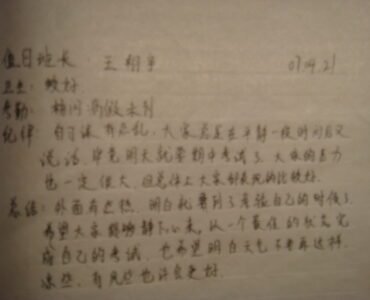 值日班长: 王翔宇 07.04.21
卫生: 较好
考勤: 请假未到
纪律: 自习课有点乱, 大家总是在平静一段时间后又
说话, 毕竟明天就要期中考试了, 大家的压力
也一定很大, 但总体上大家都表现的比较好.
总结: 外面有些热, 明白就要到了考验自己的时候了,
希望大家能够静下心来, 从一个最佳的状态完
成自己的考试, 也希望明白天气不要再这样
凉些, 有风些也许会更好.